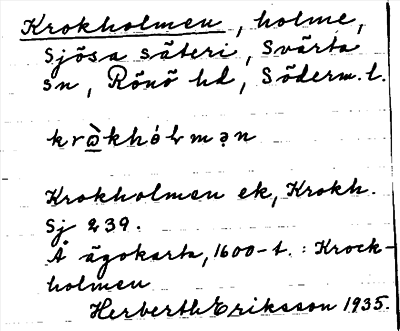 Krokholmen, holme,
Sjösa säteri, Svärta
sn, Rönö hd, Söderm. l.
krὼkhólmən
Krokholmen ek, Krokh.
Sj 239.
Å ägokarta, 1600-t. : Krock-
holmen
Herberth Eriksson 1935